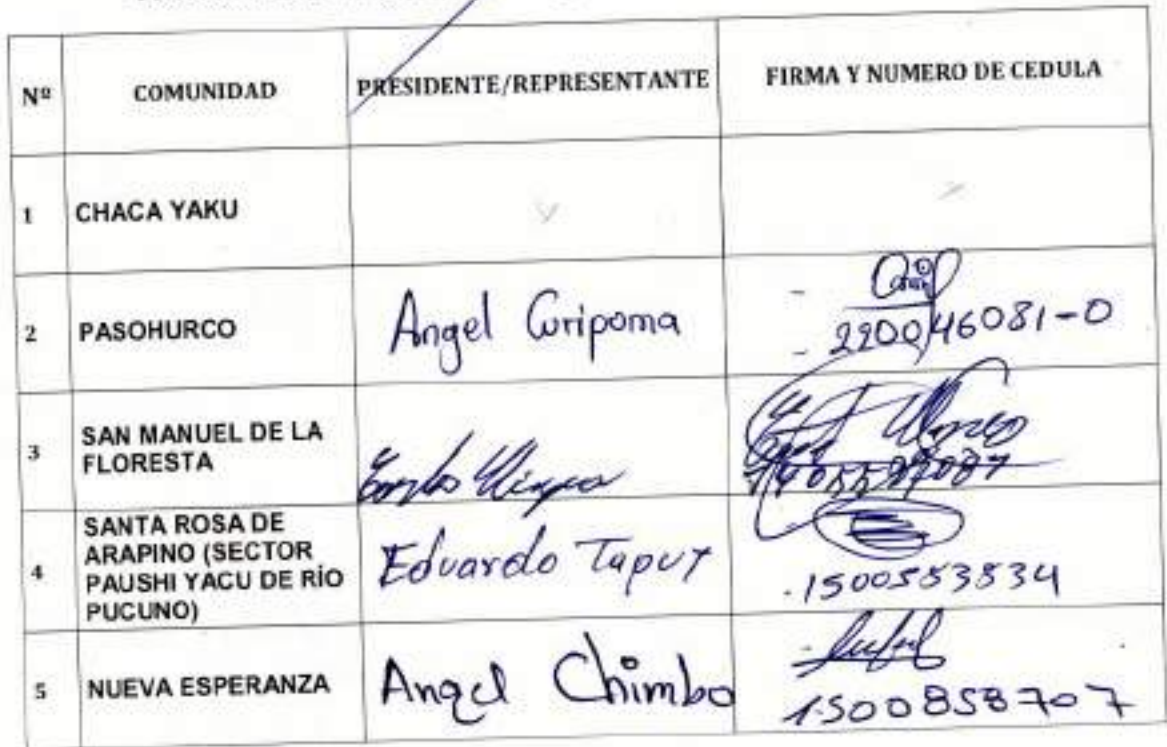 Nº COMUNIDAD PRESIDENTE/REPRESENTANTE FIRMA Y NUMERO DE CEDULA
1 CHACA YAKU
2 PASOHURCO Angel Curipoma 220046081-0
3 SAN MANUEL DE LA
FLORESTA
4 SANTA ROSA DE
ARAPINO (SECTOR
PAUSHI YACU DE RÍO
PUCUNO) Eduardo Tapuy 1500553534
5 NUEVA ESPERANZA Angel Chimbo 1500858707